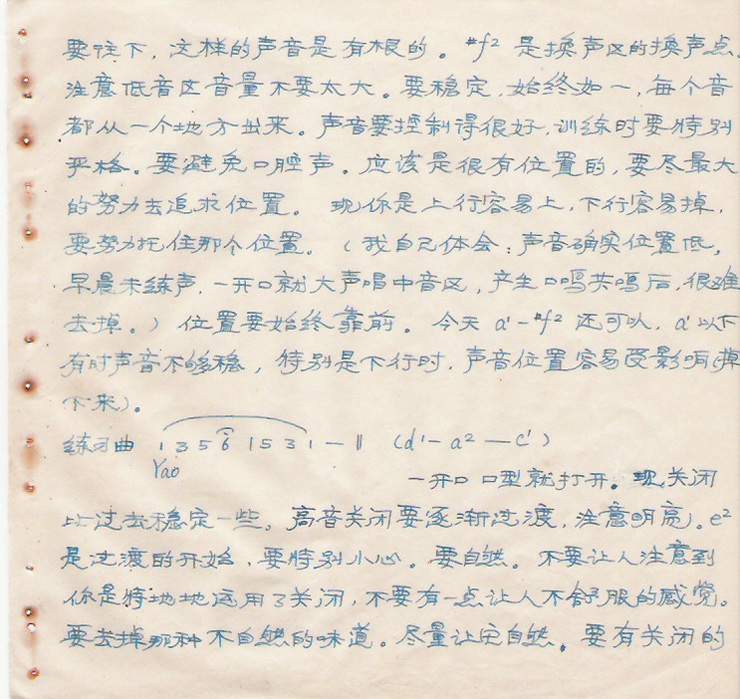 要往下，这样的声音是有根的。#f² 是换声区的换声点，
注意低音区音量不要太大。要稳定，始终如一，每个音
都从一个地方出来。声音要控制得很好，训练时要特别
严格。要避免口腔声。应该是很有位置的，要尽最大
的努力去追求位置。 现你是上行容易上，下行容易掉，
要努力托住那个位置。（我自己体会：声音确实位置低，
早晨未练声，一开口就大声唱中音区，产生口鸣共鸣后，很难
去掉。）位置要始终靠前。今天 a¹-#f² 还可以，a¹以下
有时声音不够稳，特别是下行时，声音位置容易受影响（掉
下来）。
练习曲 1 3 5 6 1 5 3 1 — ‖ （d¹- a² — c¹）
Yao
一开口 口型就打开。现关闭
比过去稳定一些。高音关闭要逐渐过渡，注意明亮）。e²
是过渡的开始，要特别小心。要自然。不要让人注意到
你是特地地运用了关闭，不要有一点让人不舒服的感觉。
要去掉那种不自然的味道。尽量让它自然。要有关闭的